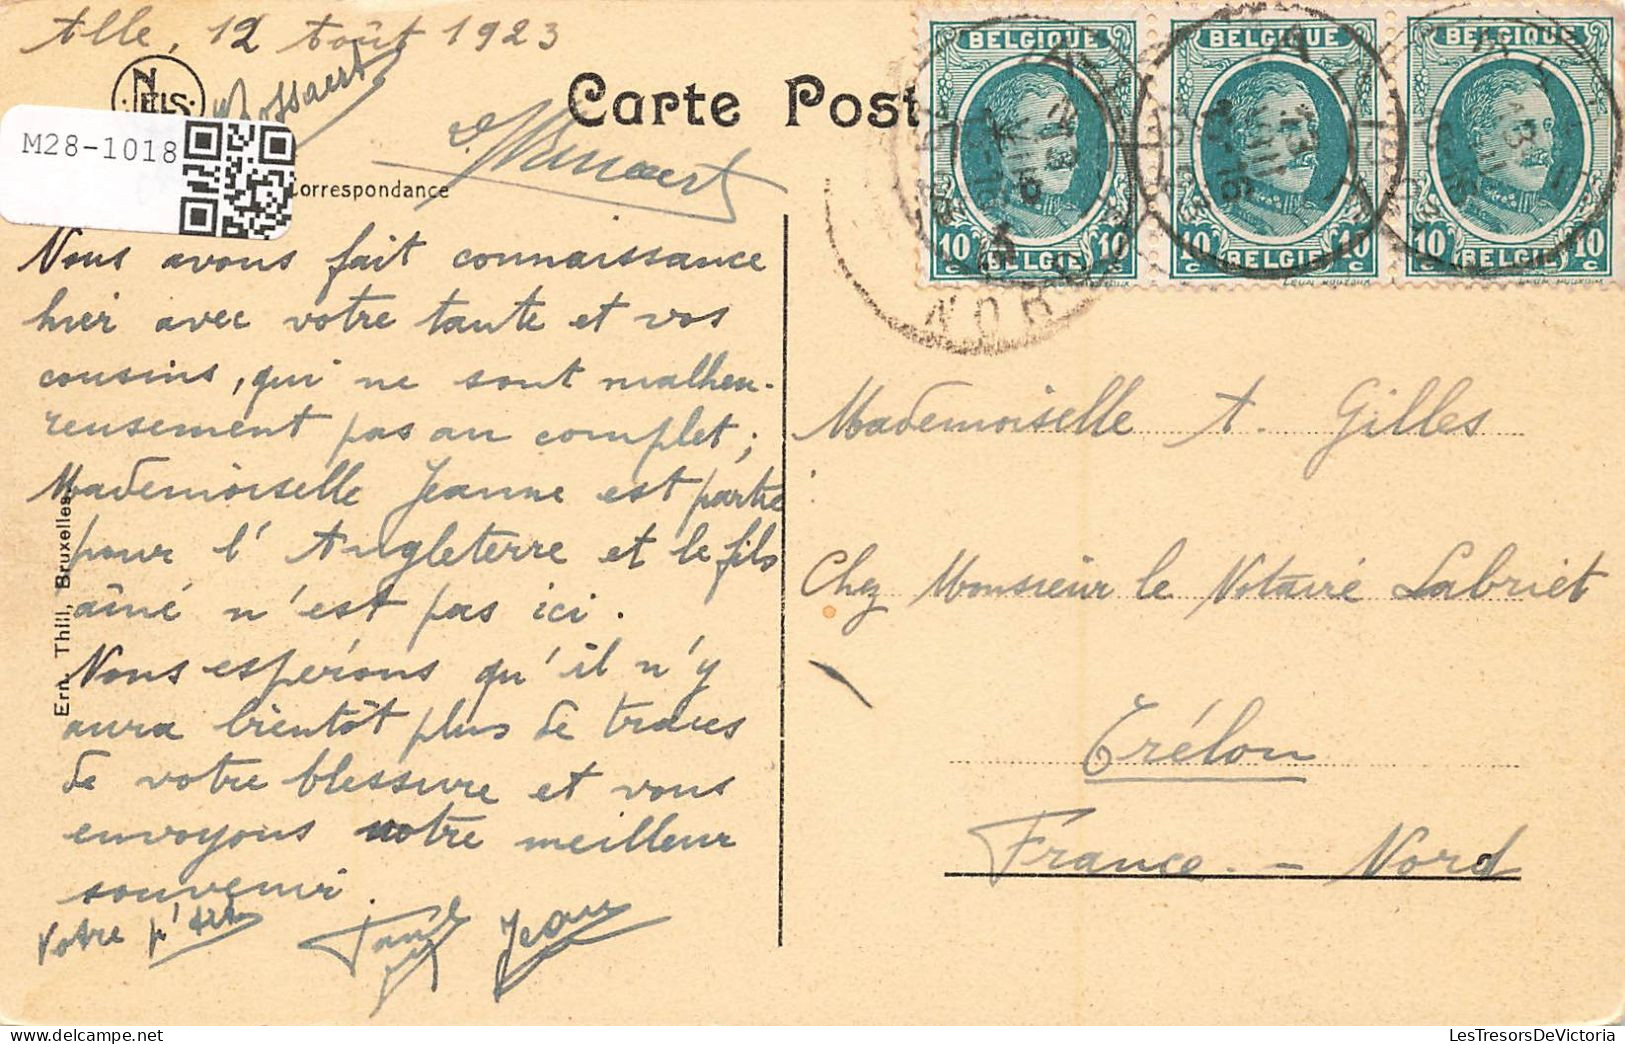 Alle, 12 Août 1923
NELS
M28-1018
Carte Post
Correspondance
BELGIQUE BELGIQUE BELGIQUE
10 c 10 c 10 c 10 c 10 c 10 c
(BELGIË) (BELGIË) (BELGIË)
NORD
Nous avons fait connaissance
hier avec votre tante et vos
cousins, qui ne sont malheu-
reusement pas au complet ;
Mademoiselle Jeanne est partie
pour l'Angleterre et le fils
aîné n'est pas ici.
Nous espérons qu'il n'y
aura bientôt plus de traces
de votre blessure et vous
envoyons notre meilleur
souvenir.
Votre p'tit
Jean
Ern. Thill, Bruxelles.
Mademoiselle A. Gilles
Chez Monsieur le Notaire Labriet
Trélon
France. - Nord
LesTresorsDeVictoria